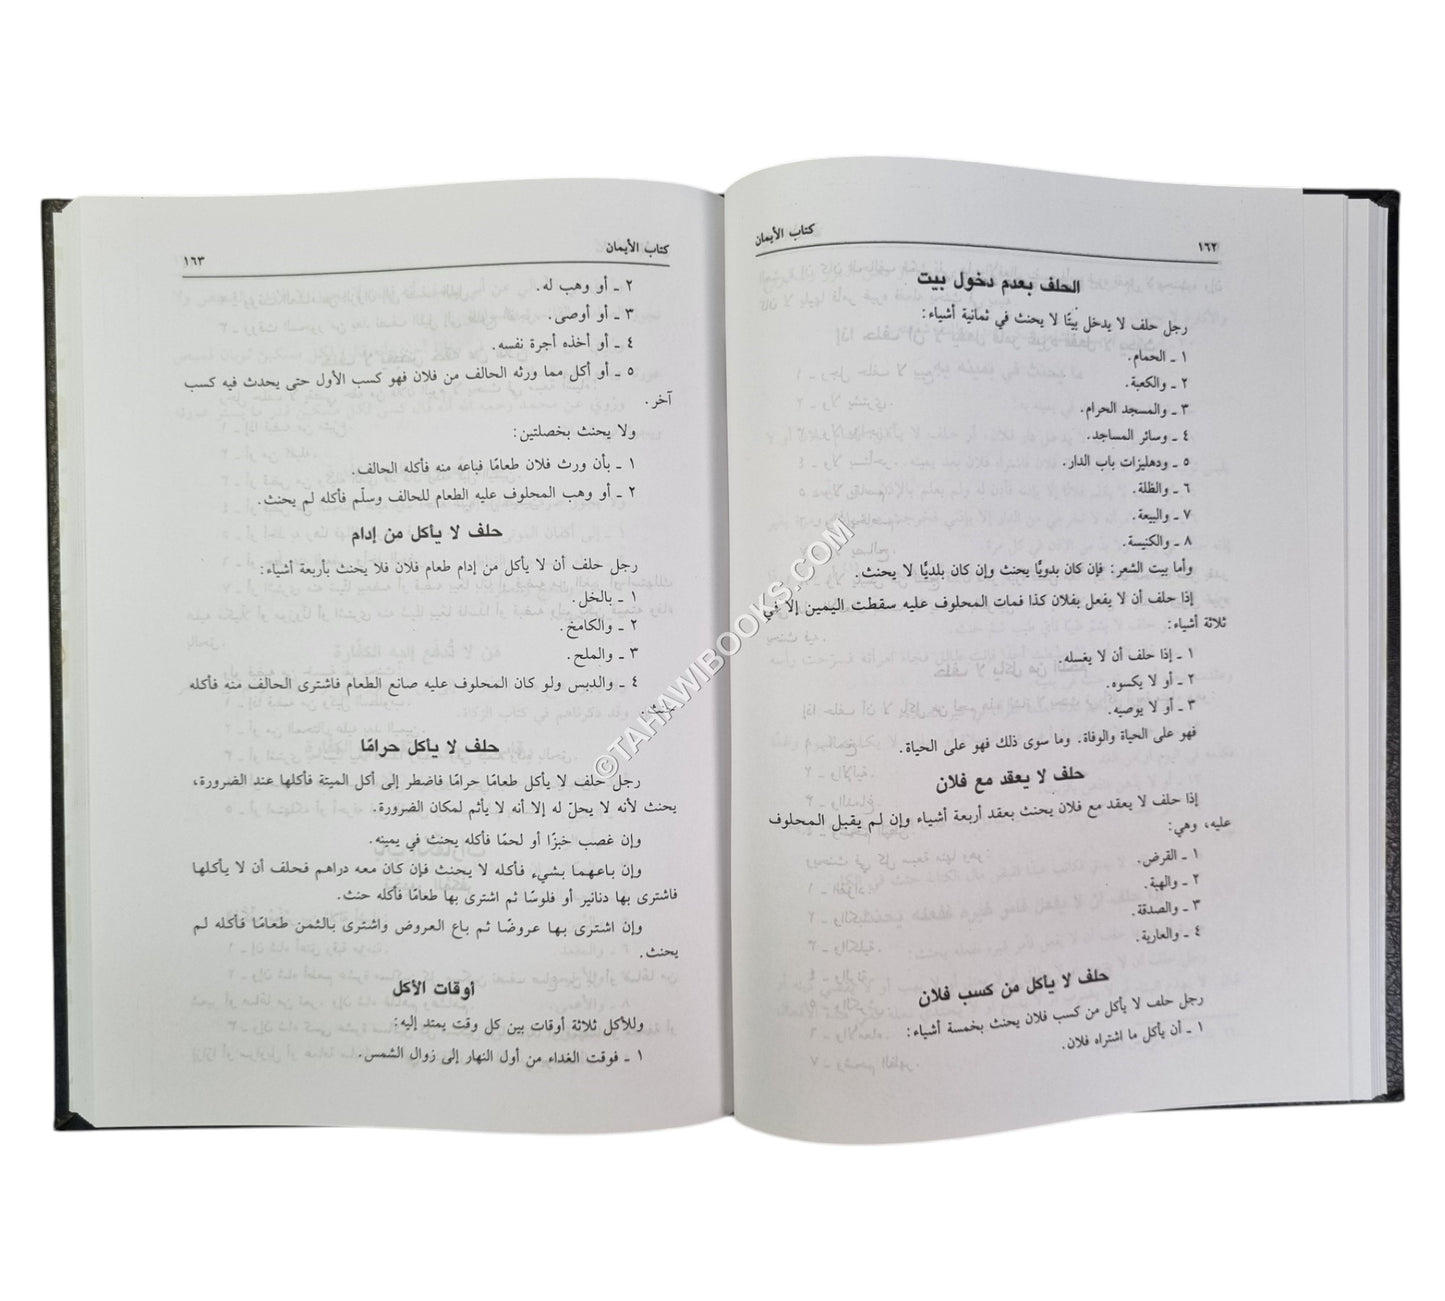 كتاب الأيمان ١٦٢
الحلف بعدم دخول بيت
رجل حلف لا يدخل بيتًا لا يحنث في ثمانية أشياء:
١ ـ الحمام.
٢ ـ والكعبة.
٣ ـ والمسجد الحرام.
٤ ـ وسائر المساجد.
٥ ـ ودهليزات باب الدار.
٦ ـ والظلة.
٧ ـ والبيعة.
٨ ـ والكنيسة.
وأما بيت الشعر: فإن كان بدويًّا يحنث وإن كان بلديًّا لا يحنث.
إذا حلف أن لا يفعل بفلان كذا فمات المحلوف عليه سقطت اليمين إلا في
ثلاثة أشياء:
١ ـ إذا حلف أن لا يغسله.
٢ ـ أو لا يكسوه.
٣ ـ أو لا يوصيه.
فهو على الحياة والوفاة. وما سوى ذلك فهو على الحياة.
حلف لا يعقد مع فلان
إذا حلف لا يعقد مع فلان يحنث بعقد أربعة أشياء وإن لم يقبل المحلوف
عليه، وهي:
١ ـ القرض.
٢ ـ والهبة.
٣ ـ والصدقة.
٤ ـ والعارية.
حلف لا يأكل من كسب فلان
رجل حلف لا يأكل من كسب فلان يحنث بخمسة أشياء:
١ ـ أن يأكل ما اشتراه فلان.
كتاب الأيمان ١٦٣
٢ ـ أو وهب له.
٣ ـ أو أوصى.
٤ ـ أو أخذه أجرة نفسه.
٥ ـ أو أكل مما ورثه الحالف من فلان فهو كسب الأول حتى يحدث فيه كسب
آخر.
ولا يحنث بخصلتين:
١ ـ بأن ورث فلان طعامًا فباعه منه فأكله الحالف.
٢ ـ أو وهب المحلوف عليه الطعام للحالف وسلّم فأكله لم يحنث.
حلف لا يأكل من إدام
رجل حلف أن لا يأكل من إدام طعام فلان فلا يحنث بأربعة أشياء:
١ ـ بالخل.
٢ ـ والكامخ.
٣ ـ والملح.
٤ ـ والدبس ولو كان المحلوف عليه صانع الطعام فاشترى الحالف منه فأكله
يحنث.
حلف لا يأكل حرامًا
رجل حلف لا يأكل طعامًا حرامًا فاضطر إلى أكل الميتة فأكلها عند الضرورة،
يحنث لأنه لا يحلّ له إلا أنه لا يأثم لمكان الضرورة.
وإن غصب خبزًا أو لحمًا فأكله يحنث في يمينه.
وإن باعهما بشيء فأكله لا يحنث فإن كان معه دراهم فحلف أن لا يأكلها
فاشترى بها دنانير أو فلوسًا ثم اشترى بها طعامًا فأكله حنث.
وإن اشترى بها عروضًا ثم باع العروض واشترى بالثمن طعامًا فأكله لم
يحنث.
أوقات الأكل
وللأكل ثلاثة أوقات بين كل وقت يمتد إليه:
١ ـ فوقت الغداء من أول النهار إلى زوال الشمس.
©TAHAWIBOOKS.COM